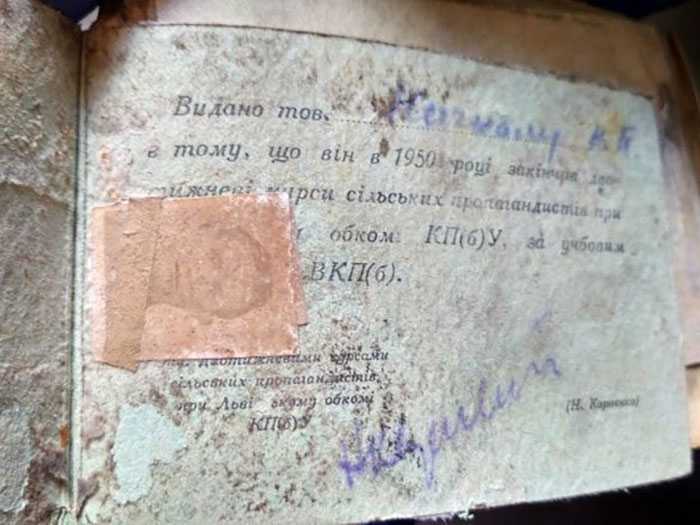 Видано тов.
в тому, що він в 1950 році закінчив дво-
тижневі курси сільських пропагандистів при
обкомі КП(б)У, за учбовим
ВКП(б).
двотижневими курсами
сільських пропагандистів,
при Льві ському обкомі
КП(б)У